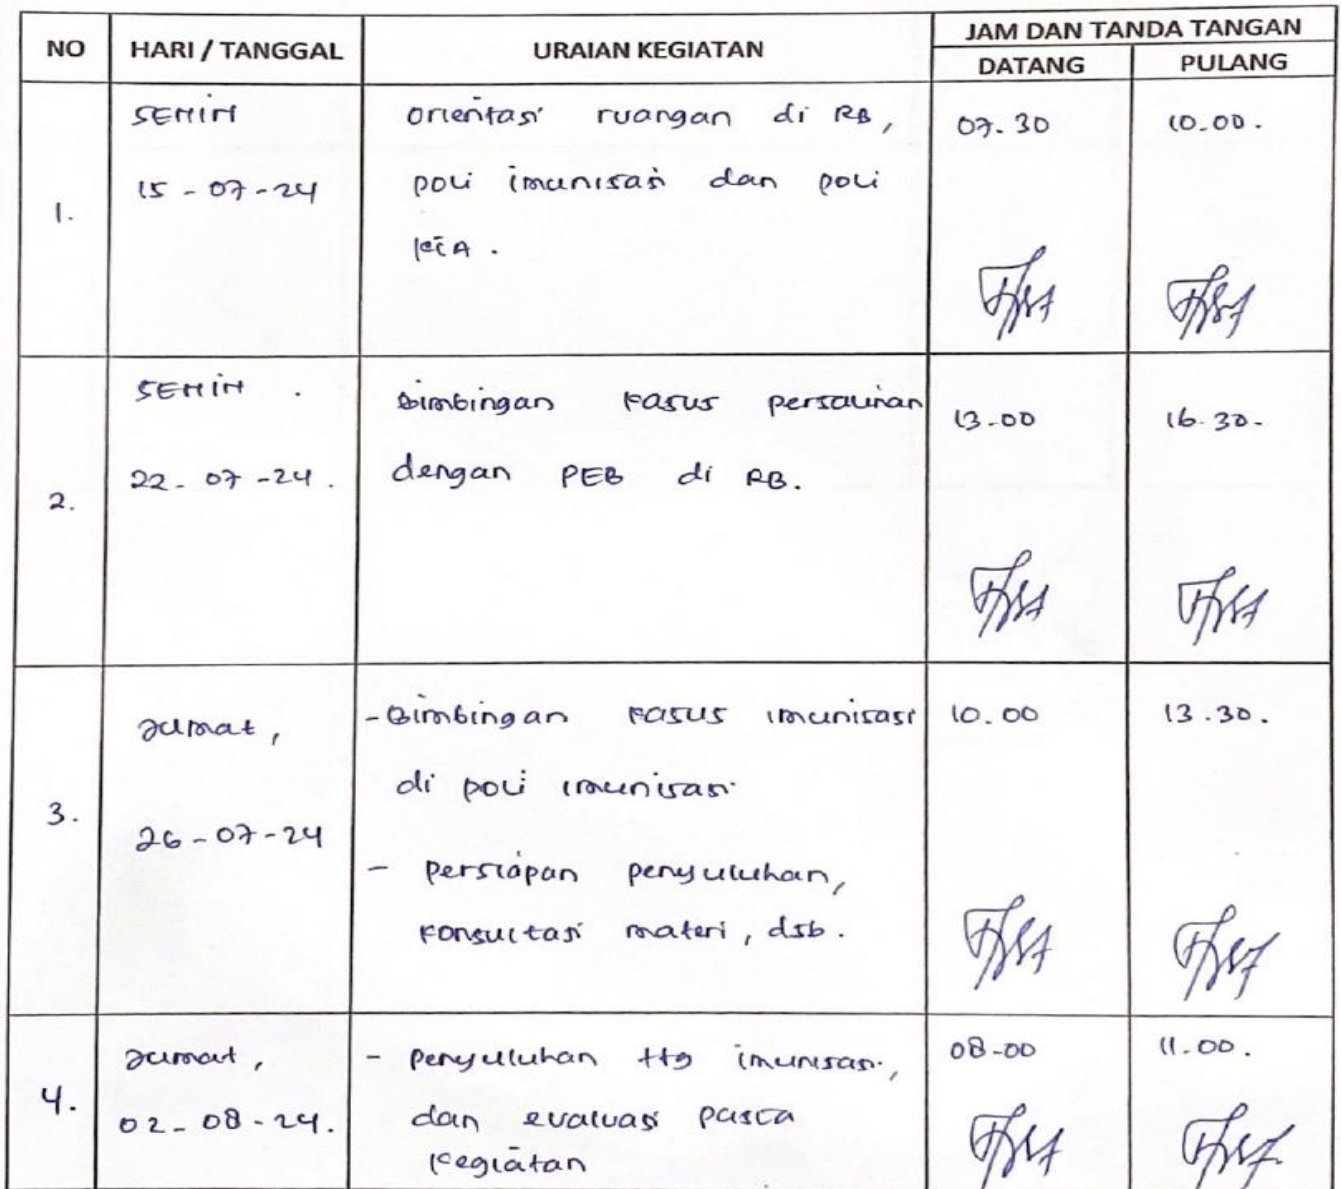 NO HARI / TANGGAL URAIAN KEGIATAN JAM DAN TANDA TANGAN
DATANG PULANG
1.
SENIN
15 - 07 - 24
Orientasi ruangan di RB,
poli imunisasi dan poli
KIA.
07.30
10.00.
2.
SENIN.
22 - 07 - 24.
Bimbingan kasus persalinan
dengan PEB di RB.
13.00
16.30.
3.
Jumat,
26 - 07 - 24
- Bimbingan kasus imunisasi
di poli imunisasi
- Persiapan penyuluhan,
konsultasi materi, dsb.
10.00
13.30.
4.
Jumat,
02 - 08 - 24.
- Penyuluhan ttg imunisasi,
dan evaluasi pasca
kegiatan
08.00
11.00.